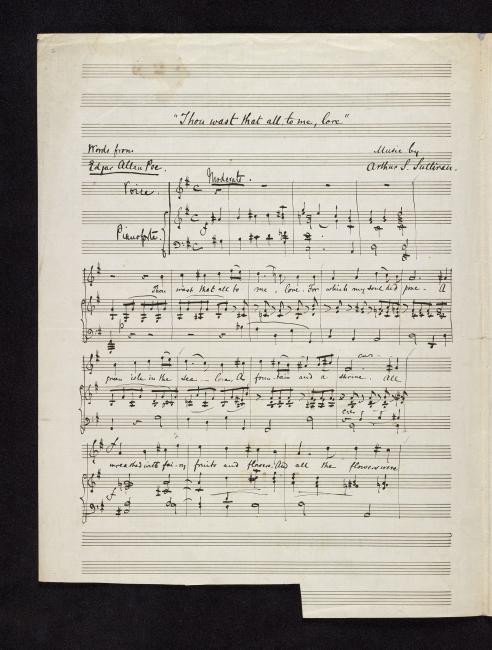 "Thou wast that all to me, love"
Words from
Edgar Allan Poe.
Music by
Arthur S. Sullivan.
Moderato.
Voice.
Pianoforte.
Thou wast that all to me, love. For which my soul did pine - A
green isle in the sea - love, A foun-tain and a shrine. All
wreathed with fai-ry fruits and flowers. And all the flowers were